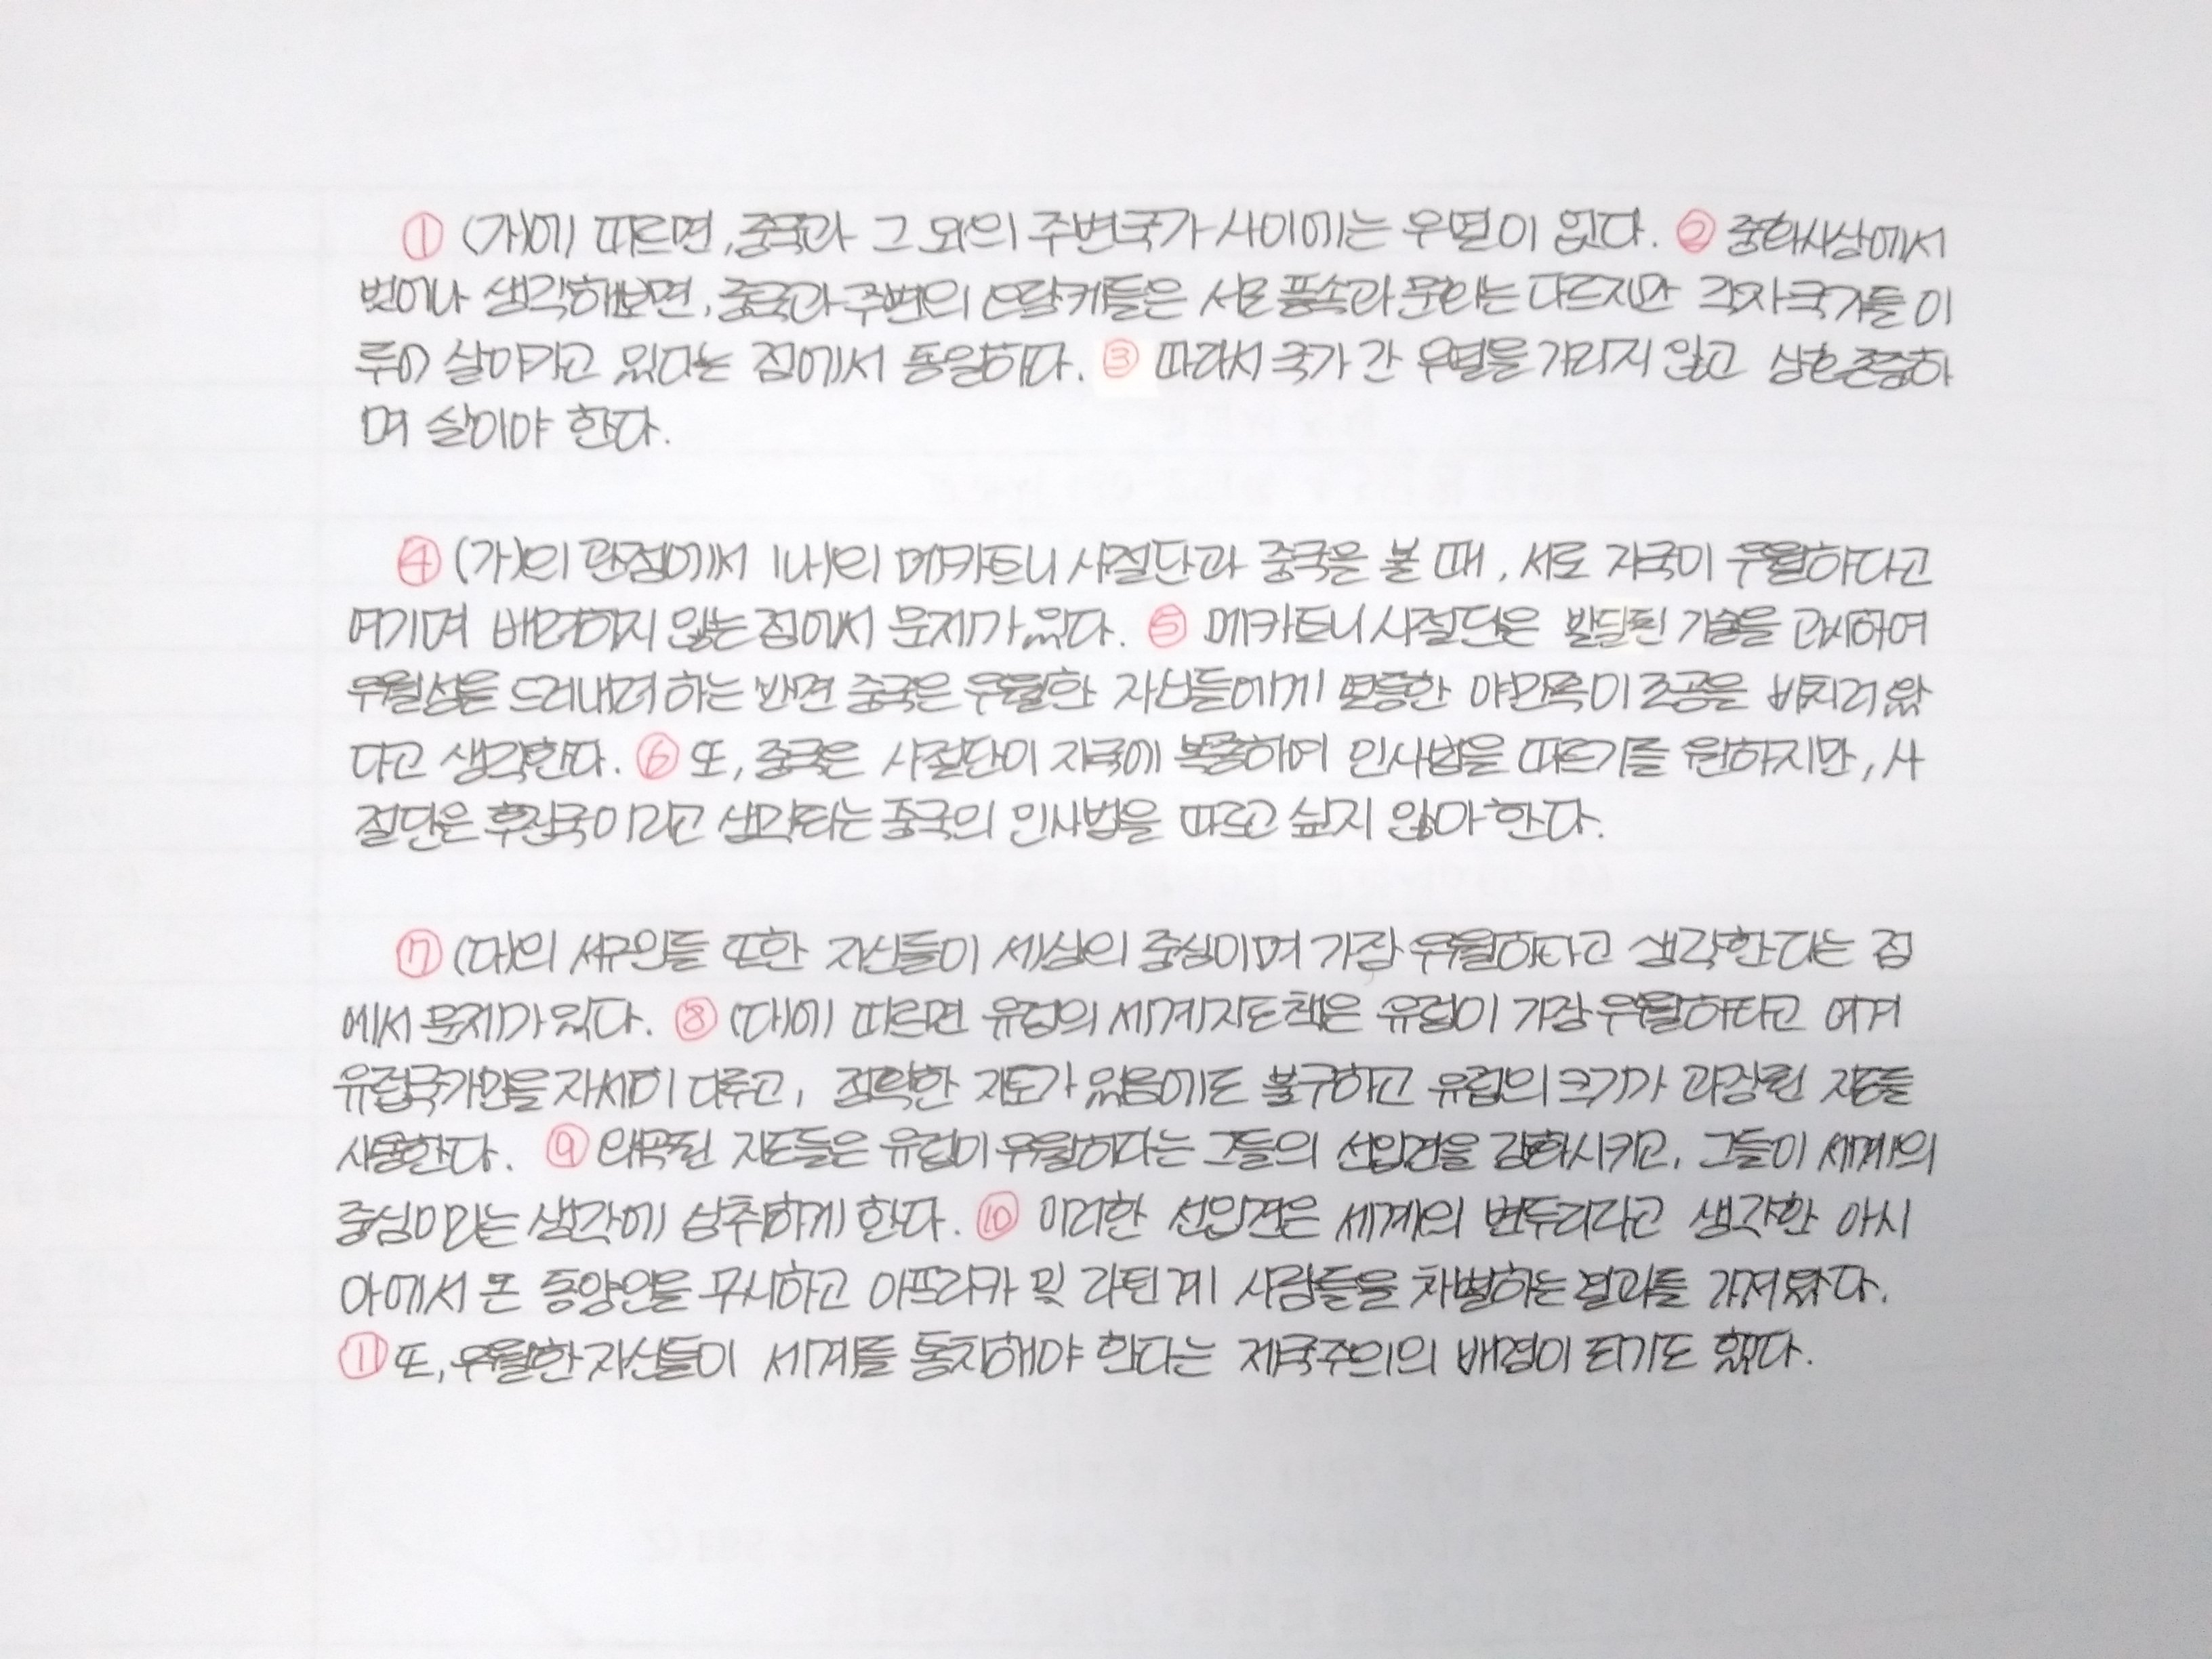 ① (가)에 따르면, 중국과 그 외의 주변국가 사이에는 우열이 없다. ② 중화사상에서
벗어나 생각해보면, 중국과 주변의 오랑캐들은 서로 풍속과 문화는 다르지만 각자 국가를 이
루어 살아가고 있다는 점에서 동일하다. ③ 따라서 국가 간 우열을 가리지 않고 상호존중하
며 살아야 한다.
④ (가)의 관점에서 (나)의 메카트니 사절단과 중국을 볼 때, 서로 자국이 우월하다고
여기며 배려하지 않는 점에서 문제가 있다. ⑤ 메카트니 사절단은 발달된 기술을 과시하여
우월성을 드러내려 하는 반면 중국은 우월한 자신들에게 모종한 야만족이 조공을 바치러 왔
다고 생각한다. ⑥ 또, 중국은 사절단이 자국에 복종하여 인사법을 따르기를 원하지만, 사
절단은 후진국이라고 생각되는 중국의 인사법을 따르고 싶지 않아 한다.
⑦ (다)의 서구인들 또한 자신들이 세상의 중심이며 가장 우월하다고 생각한다는 점
에서 문제가 있다. ⑧ (다)에 따르면 유럽의 세계지도책은 유럽이 가장 우월하다고 여겨
유럽국가만을 자세히 다루고, 정확한 지도가 있음에도 불구하고 유럽의 크기가 과장된 지도를
사용한다. ⑨ 왜곡된 지도들은 유럽이 우월하다는 그들의 선입견을 강화시키고, 그들이 세계의
중심이라는 생각에 심취하게 한다. ⑩ 이러한 선입견은 세계의 변두리라고 생각한 아시
아에서 온 동양인을 무시하고 아프리카 및 라틴계 사람들을 차별하는 결과를 가져왔다.
⑪ 또, 우월한 자신들이 세계를 통치해야 한다는 제국주의의 배경이 되기도 했다.